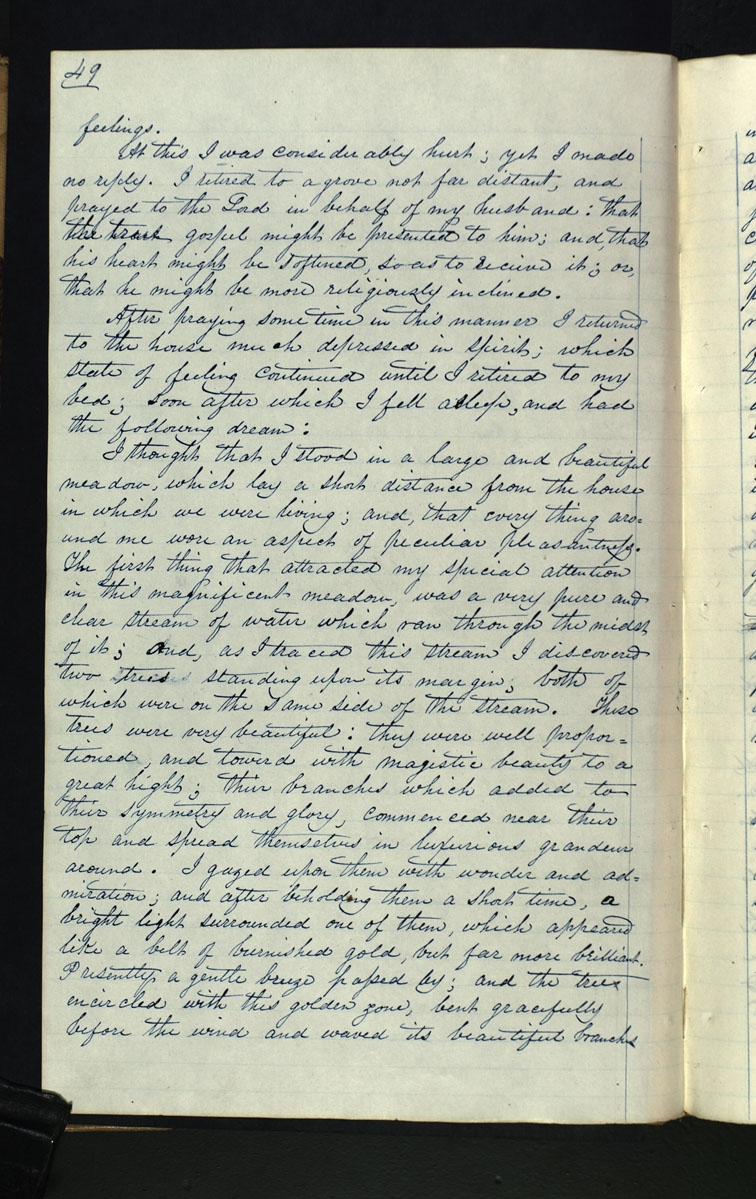 49
feelings.
At this I was considerably hurt; yet I made
no reply. I retired to a grove not far distant, and
prayed to the Lord in behalf of my husband: that
the true gospel might be presented to him; and, that
his heart might be softened, so as to recieve it; or,
that he might be more religiously inclined.
After praying some time in this manner I returned
to the house much depressed in spirit; which
state of feeling continued until I retired to my
bed; soon after which I fell asleep, and had
the following dream:
I thought that I stood in a large and beautiful
meadow, which lay a short distance from the house
in which we were living; and, that every thing aro=
und me wore an aspect of peculiar pleasantness.
The first thing that attracted my special attention
in this magnificent meadow, was a very pure and
clear stream of water which ran through the midst
of it; and, as I traced this stream I discovered
two trees standing upon its margin; both of
which were on the same side of the stream. These
trees were very beautiful: they were well propor=
tioned, and towerd with majestic beauty to a
great hight; their branches which added to
their symmetry and glory, commenced near their
top and spread themselves in luxurious grandeur
around. I gazed upon them with wonder and ad=
miration; and after beholding them a short time, a
bright light surrounded one of them, which appeared
like a belt of burnished gold, but far more brilliant.
Presently, a gentle breeze passed by; and the tree
encircled with this golden zone, bent gracefully
before the wind and waved its beautiful branches